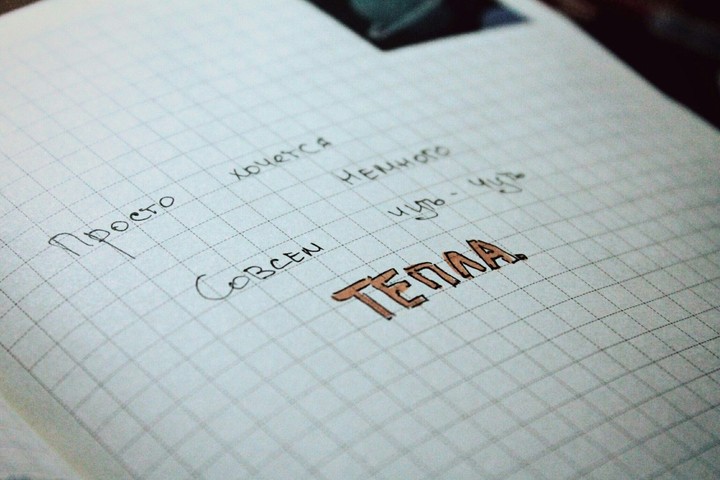 Просто хочется
немного
Совсем чуть-чуть
ТЕПЛА.